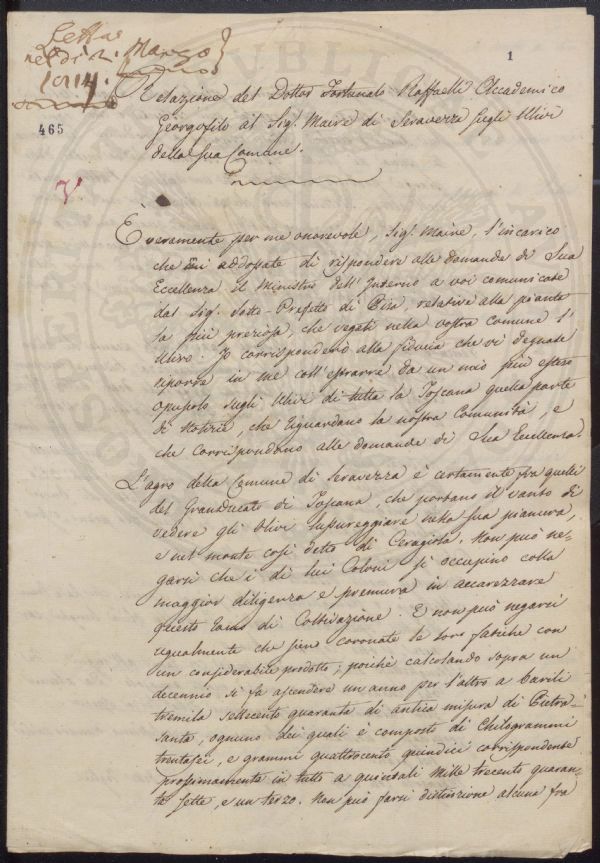 Letta
nel dì 2. Marzo
1814.
1
465
Relazione del Dottor Fortunato Raffaelli Accademico
Georgofilo al Sig.r Maire di Seravezza sugli Ulivi
della sua Comune.
È veramente per me onorevole, Sig.r Maire, l'incarico
che mi addossate di rispondere alle domande di Sua
Eccellenza il Ministro dell'Interno a voi comunicate
dal Sig.r Sotto-Prefetto di Pisa, relative alla pianta
la più preziosa, che vegeti nella vostra comune l'
Ulivo. Io corrisponderò alla fiducia che vi degnate
riporre in me coll'estrarre da un mio più esteso
opuscolo sugli Ulivi di tutta la Toscana quella parte
di Notizie, che riguardano la nostra Comunità, e
che corrispondono alle domande di Sua Eccellenza.
L'agro della Comune di Seravezza è certamente fra quelli
del Granducato di Toscana, che portano il vanto di
vedere gli Olivi lussureggiare nella sua pianura,
e nel monte così detto di Ceragiola. Non può ne-
garsi che i di lei Coloni si occupino colla
maggior diligenza e premura in accarezzare
questo ramo di Coltivazione. E non può negarsi
ugualmente che sieno coronate le loro fatiche con
un considerabile prodotto; poichè calcolando sopra un
decennio si fa ascendere un anno per l'altro a barili
tremila settecento quaranta di antica misura di Pietra-
santa, ognuno dei quali è composto di Chilogrammi
trentasei, e grammi quattrocento quindici corrispondente
prossimamente in tutto a quintali Mille trecento quaran-
ta sette, e un terzo. Non può farsi distinzione alcuna fra